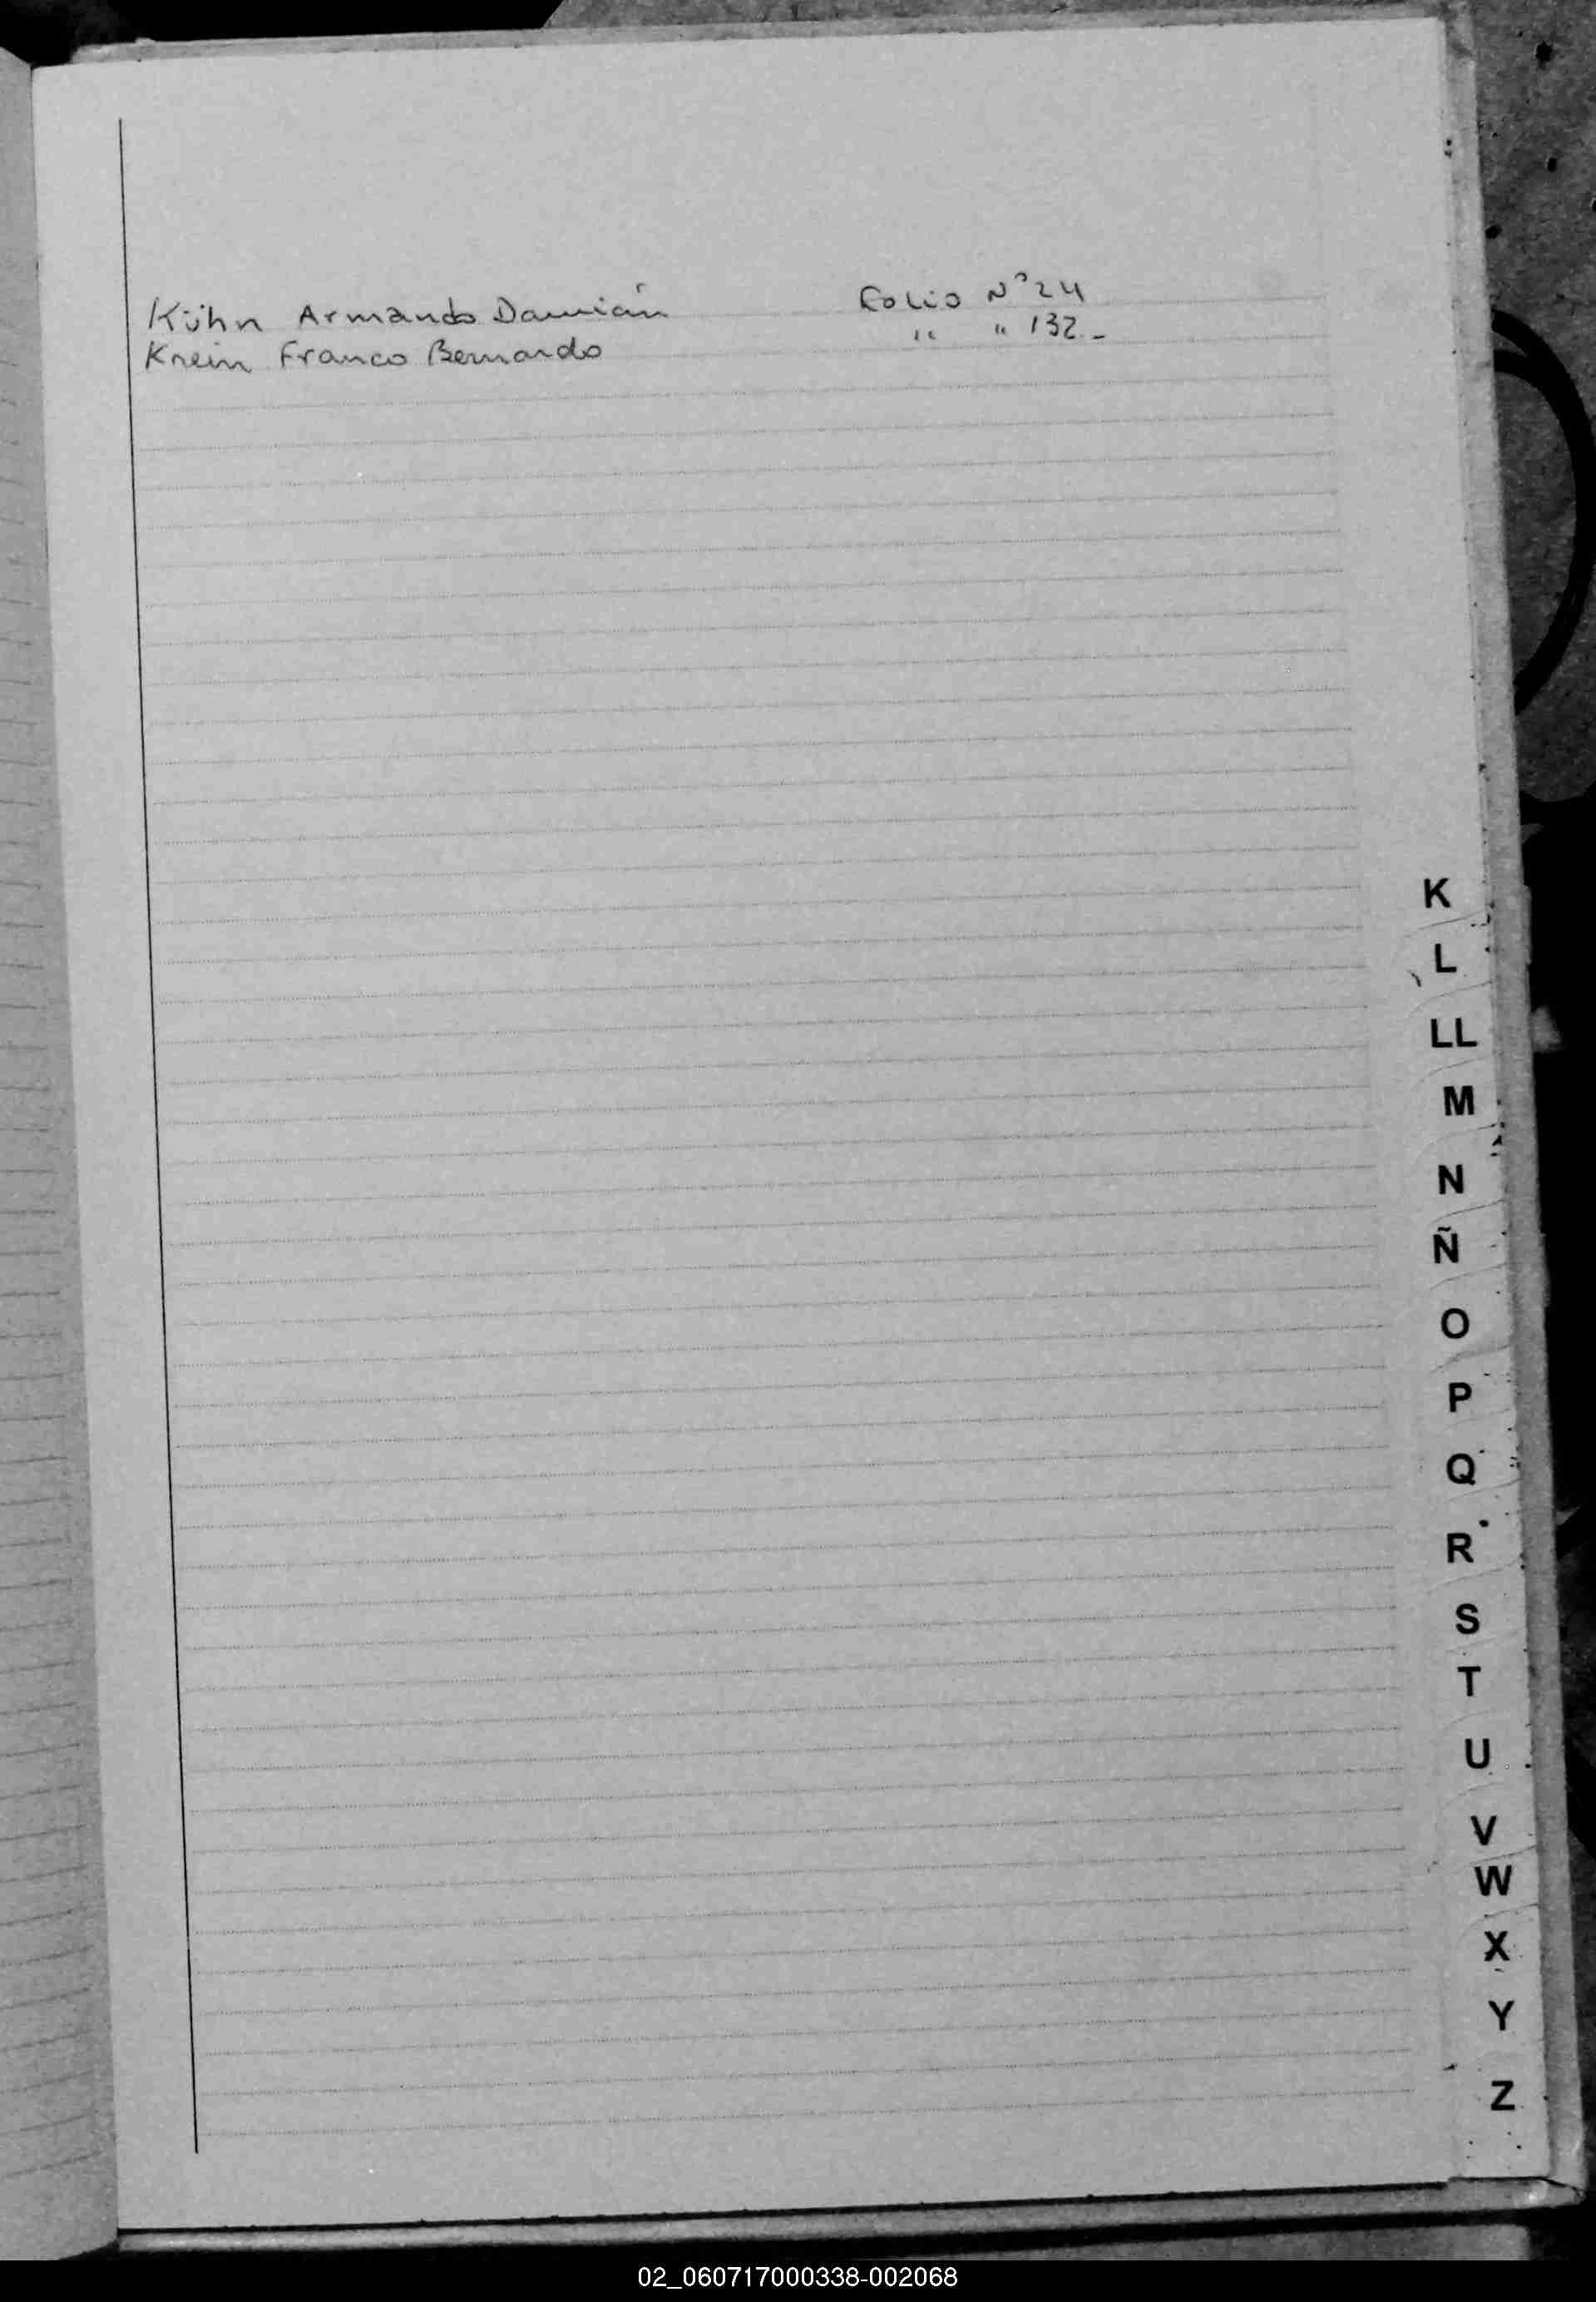 Kühn Armando Damián Folio N° 24
Krein Franco Bernardo " " 132.-
K
L
LL
M
N
Ñ
O
P
Q
R
S
T
U
V
W
X
Y
Z
02_060717000338-002068